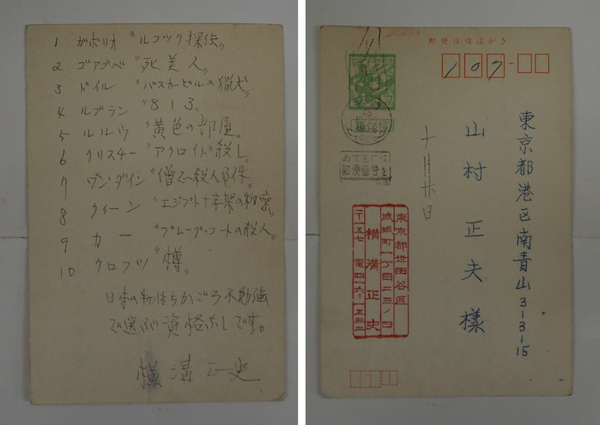 1 ガボリオ “ルコック探偵〟
2 ゴアゴベ “死美人〟
3 ドイル “バスカービルの猟犬〟
4 ルブラン “813〟
5 ルルウ “黄色の部屋〟
6 クリスチー “アクロイド殺し〟
7 ヴン・ダイン “僧正殺人事件〟
8 クイーン “エジプト十字架の秘密〟
9 カー “プレーグ・コートの殺人〟
10 クロフツ “樽〟
日本の
で選ぶ資格なしです。
横溝正史
郵便往復はがき
107-
東京都港区南青山3-3-15
山村正夫様
東京都世田谷区
成城町一丁目二三ノ四
横溝正史